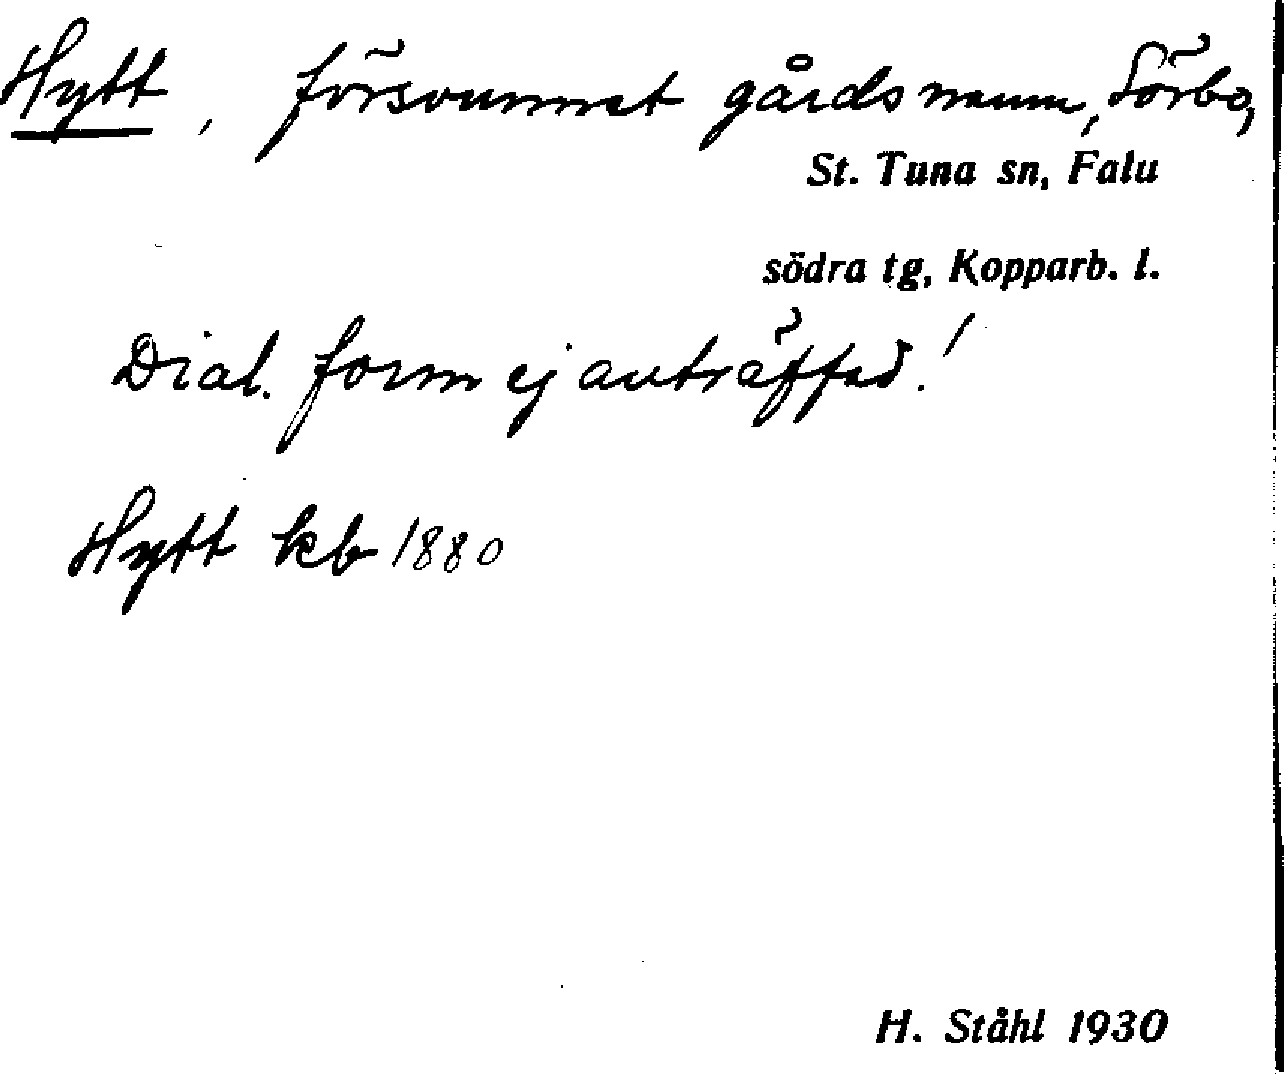 Hytt, försvunnet gårdsnamn, Sörbo,
St. Tuna sn, Falu
södra tg, Kopparb. l.
Dial. form ej anträffad!
Hytt kb 1880
H. Ståhl 1930